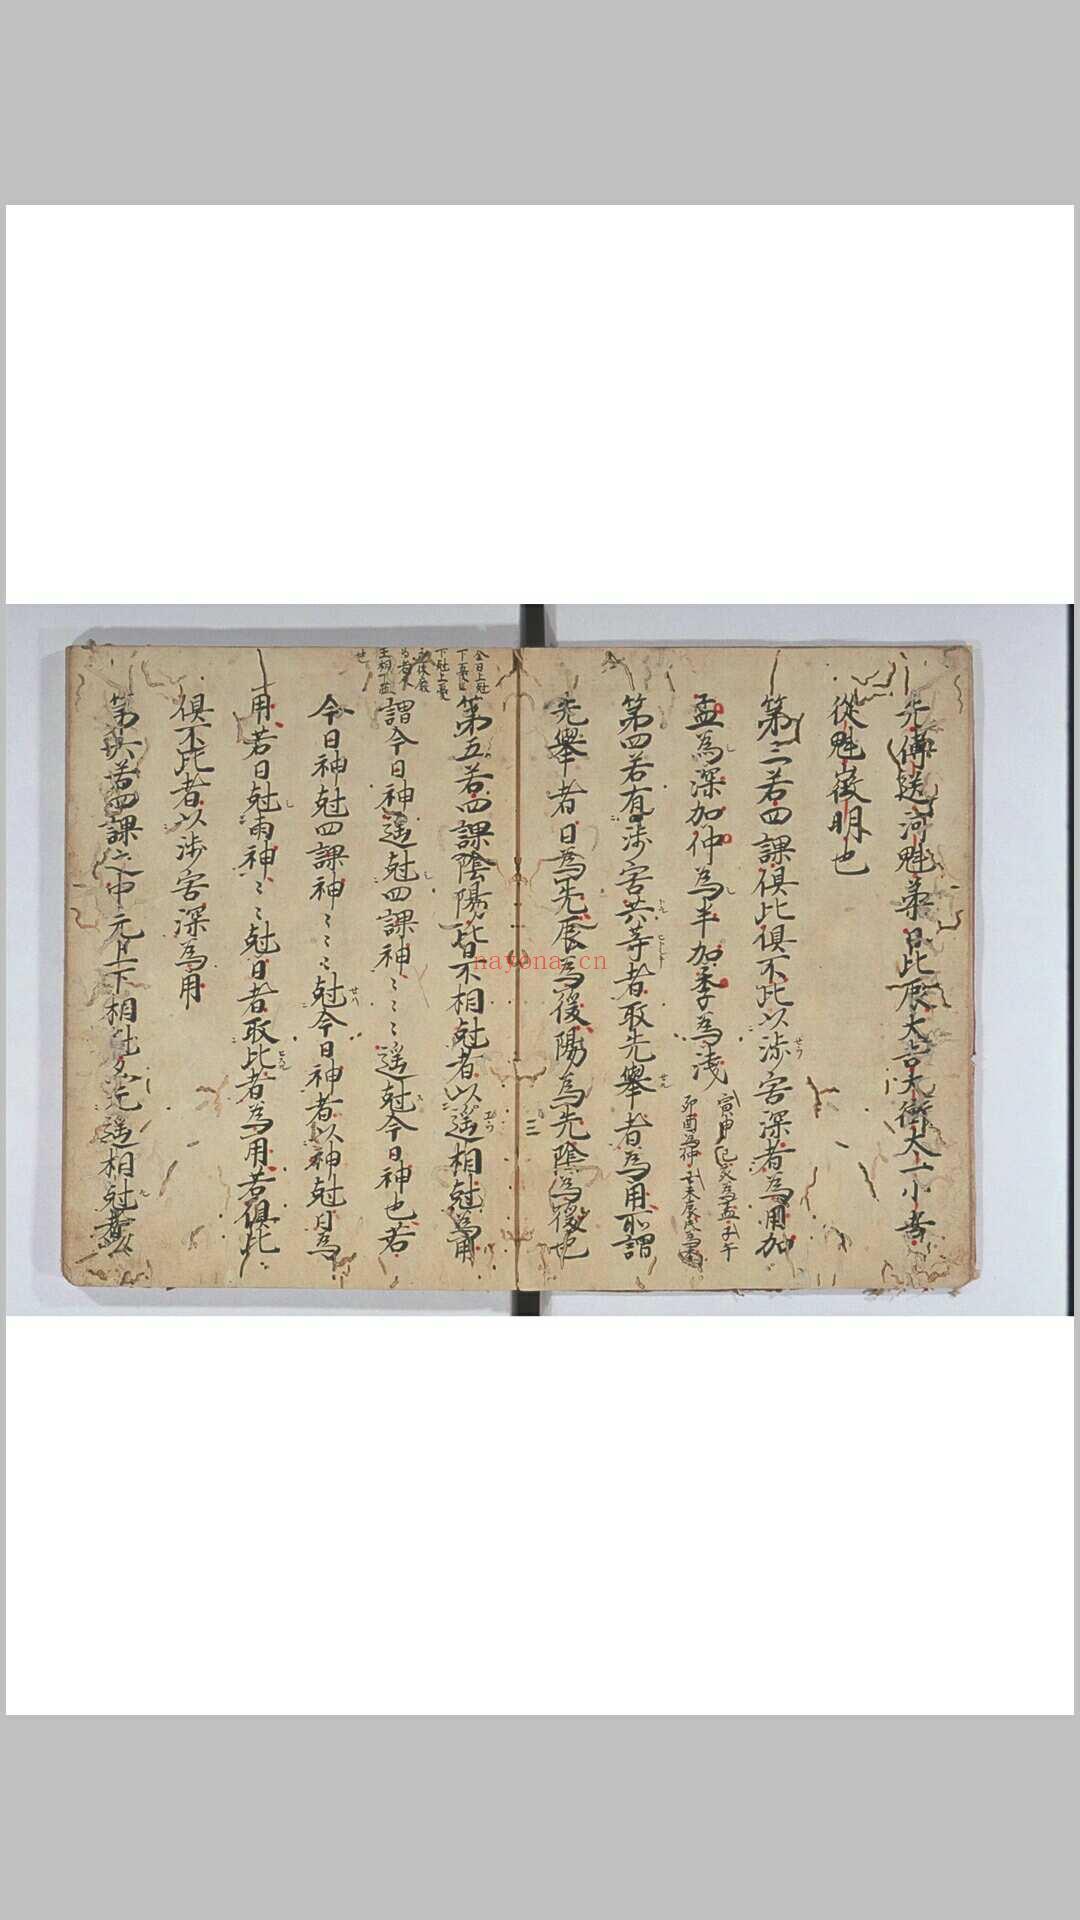 先傳送河魁第
比辰大吉大衝太一小吉
從魁徴明也
第三若四課倶比倶不比以渉害深者為用加
孟為深加仲為半加季為浅
寅申巳亥為孟子午
卯酉為仲丑未辰戌為季
第四若有渉害共等者取先舉者為用所謂
先舉者日為先辰為後陽為先陰為後也
三
第五若四課陰陽皆不相尅者以遥相尅為用
謂今日神遥尅四課神〻〻〻遥尅今日神也若
今日神尅四課神〻〻〻尅今日神者以神尅日為
用若日尅両神〻〻尅日者取比者為用若倶比
倶不比者以渉害深為用
第六若四課之中元上下相尅又元遥相尅者
nayona.cn